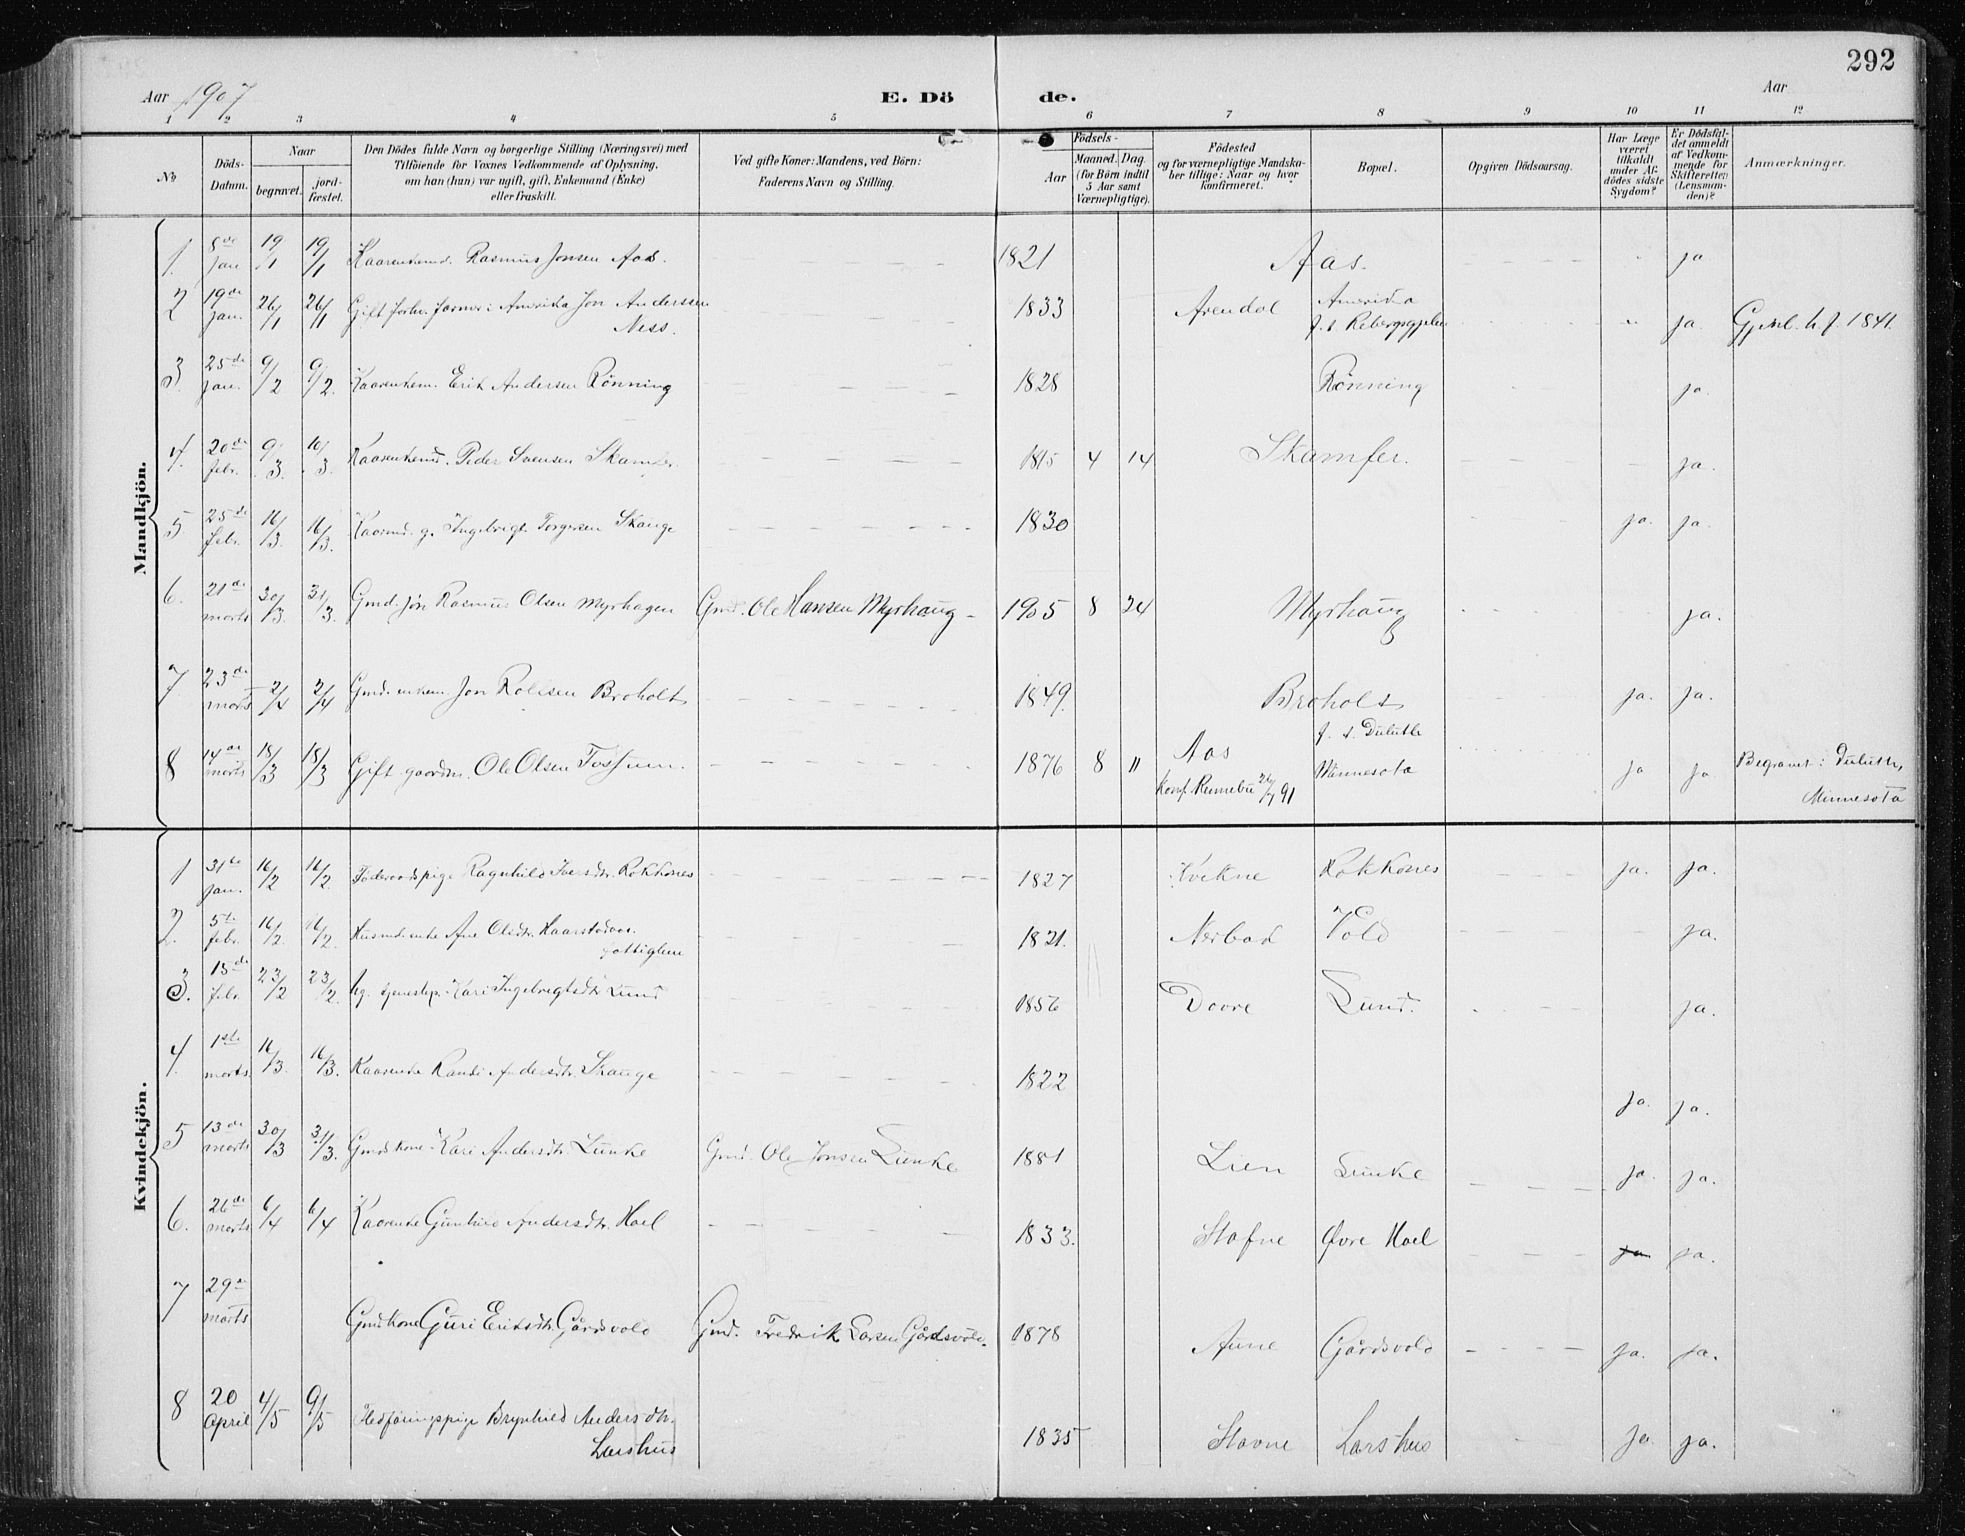 292
Aar 1907
E. Dö de.
Aar
1 2 3 4 5 6 7 8 9 10 11 12
No
Döds-Datum.
Naar
begravet.
jord-fæstet.
Den Dödes fulde Navn og borgerlige Stilling (Næringsvei) med
Tilföiende for Voxnes Vedkommende af Oplysning,
om han (hun) var ugift, gift, Enkemand (Enke)
eller fraskilt.
Ved gifte Koner: Mandens, ved Börn:
Faderens Navn og Stilling.
Födsels-
Aar
Maaned. Dag.
(for Börn indtil
5 Aar samt
Værnepligtige).
Födested
og for værnepligtige Mandska-
ber tillige: Naar og hvor
konfirmeret.
Bopæl.
Opgiven Dödsaarsag.
Har Læge
været
tilkaldt
under Af-
dödes sidste
Sygdom?
Er Dödsfal-
det anmeldt
af Vedkom-
mende for
Skifteretten
(Lensman-
den)?
Anmærkninger.
Mandkjön.
1. 8de Jan 19/1 19/1 Kaarenkemd. Rasmus Jonsen Aas. 1821 Aas. ja
2 19de Jan. 26/1 26/1 Gift forhv. farmer i Amerika Jon Anderssen Ness. 1833 Arendal Amerika f. t. ja. h. f. 1841.
3. 25de Jan. 9/2 9/2. Kaarenkem. Erik Andersen Rönning 1828 Rönning ja.
4. 20de febr. 9/3. 10/3. Kaarenkemd. Peder Svensen Skamfer 1815 4 14 Skamfer. ja.
5. 25de febr. 16/3. 16/3. Kaarmd. g. Ingebrigt Torgersen Skauge 1830 ja. ja.
6. 21de marts 30/3. 31/3. Gmd. sön Rasmus Olsen Myrhagen Gmd. Ole Hansen Myrhaug 1905 8 24 Myrhaug ja.
7 23de marts 2/4 2/4 Gmd. enkem. Jon Rolisen Broholt 1849. Broholt ja. ja.
8 14de marts 18/3 18/3 Gift gaardm. Ole Olsen Fossum. 1876 8 11 Aas konf. Rennebu 26/7 91 f. t. Duluth Minnesota ja ja Begravet i Duluth, Minnesota
Kvindekjön.
1 31te Jan. 16/2 16/2. Föderaadspige Ragnhild Iversdtr. Rokkones 1827 Kvikne Rokkones ja. ja.
2. 5te febr. 16/2. 16/2. Husmd. enke Ane Olsdtr. 1821. Nerbad Vold ja.
3. 15de febr. 23/2 23/2. ug. tjenestep. Kari Ingebrigtsdtr Lund 1856 Dovre Lund. ja.
4. 1ste marts. 16/3. 16/3. Kaarenke Randi Andersdtr. Skauge 1822 ja. ja.
5 13de marts 30/3 31/3. Gmdskone Kari Andersdtr. Lunke Gmd. Ole Jonsen Lunke 1881 Lien Lunke ja. ja.
6. 26de marts 6/4 6/4 Kaarenke Gunhild Andersdtr. Hoel 1833. Stafne Øvre Hoel ja ja.
7 29de marts Gmdkone Guri Eriksdtr. Gårdsvold Gmd. Fredrik Larsen Gårdsvold. 1878 Aune Gårdsvold ja. ja.
8 20 April 4/5 9/5 Brynhild Andersdtr. Larshus 1835 Stavne Larshus ja ja.